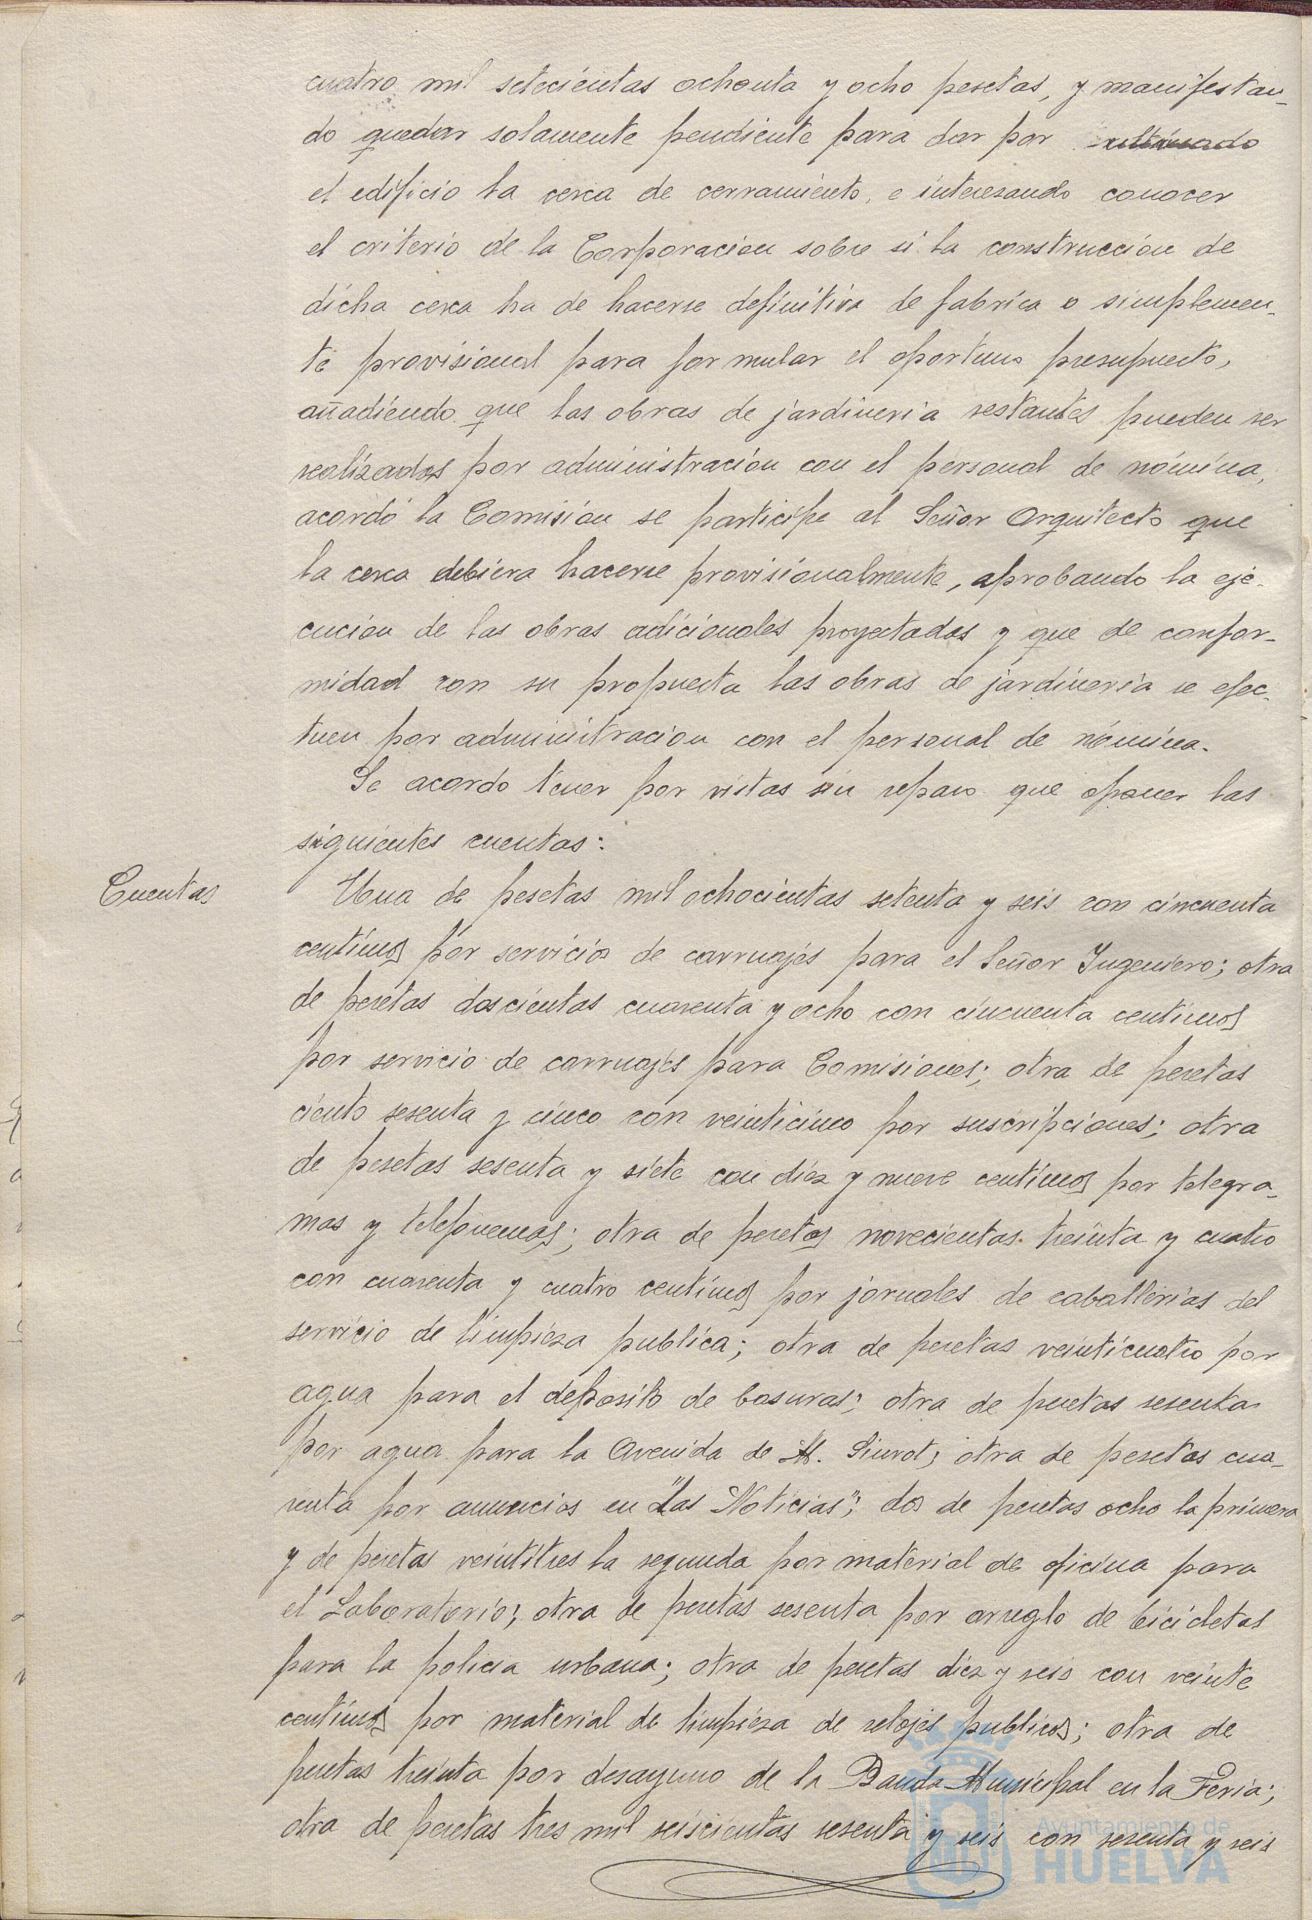 cuatro mil setecientas ochenta y ocho pesetas, y manifestan-
do quedar solamente pendiente para dar por ultimado
el edificio la cerca de cerramiento, e interesando conocer
el criterio de la Corporacion sobre si la construccion de
dicha cerca ha de hacerse definitiva de fabrica o simplemen-
te provisional para formular el oportuno presupuesto,
añadiendo que las obras de jardineria restantes pueden ser
realizadas por administración con el personal de nómina,
acordó la Comisión se participe al Señor Arquitecto que
la cerca debiera hacerse provisionalmente, aprobando la eje-
cucion de las obras adicionales proyectadas y que de confor-
midad con su propuesta las obras de jardineria se efec-
tuen por administracion con el personal de nómina.
Se acordo tener por vistas sin reparo que oponer las
siguientes cuentas:
Cuentas
Una de pesetas mil ochocientas setenta y seis con cincuenta
centimos por servicios de carruajes para el Señor Ingeniero; otra
de pesetas doscientas cuarenta y ocho con cincuenta centimos
por servicio de carruajes para Comisiones; otra de pesetas
ciento sesenta y cinco con veinticinco por suscripciones; otra
de pesetas sesenta y siete con diez y nueve centimos por telegra-
mas y telefonemas; otra de pesetas novecientas treinta y cuatro
con cuarenta y cuatro centimos por jornales de caballerias del
servicio de limpieza publica; otra de pesetas veinticuatro por
agua para el deposito de basuras; otra de pesetas sesenta
por agua para la Avenida de M. Siurot; otra de pesetas cua-
renta por anuncios en "Las Noticias"; dos de pesetas ocho la primera
y de pesetas veintitres la segunda por material de oficina para
el Laboratorio; otra de pesetas sesenta por arreglo de bicicletas
para la policia urbana; otra de pesetas diez y seis con veinte
centimos por material de limpieza de relojes publicos; otra de
pesetas treinta por desayuno de la Banda Municipal en la Feria;
otra de pesetas tres mil seiscientas sesenta y seis con sesenta y seis
Ayuntamiento de
HUELVA